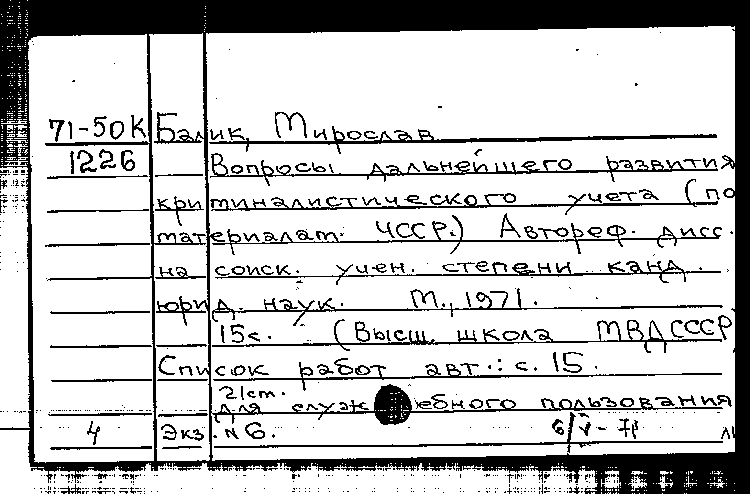 71-50К Балик, Мирослав
1226 Вопросы дальнейшего развития
криминалистического учета (по
материалам ЧССР.) Автореф. дисс.
на соиск. учен. степени канд.
юрид. наук. М., 1971.
15с. (Высш. школа МВД СССР
Список работ авт.: с. 15.
21 см.
Для служебного пользования
4 Экз. N 6. 6/V-71